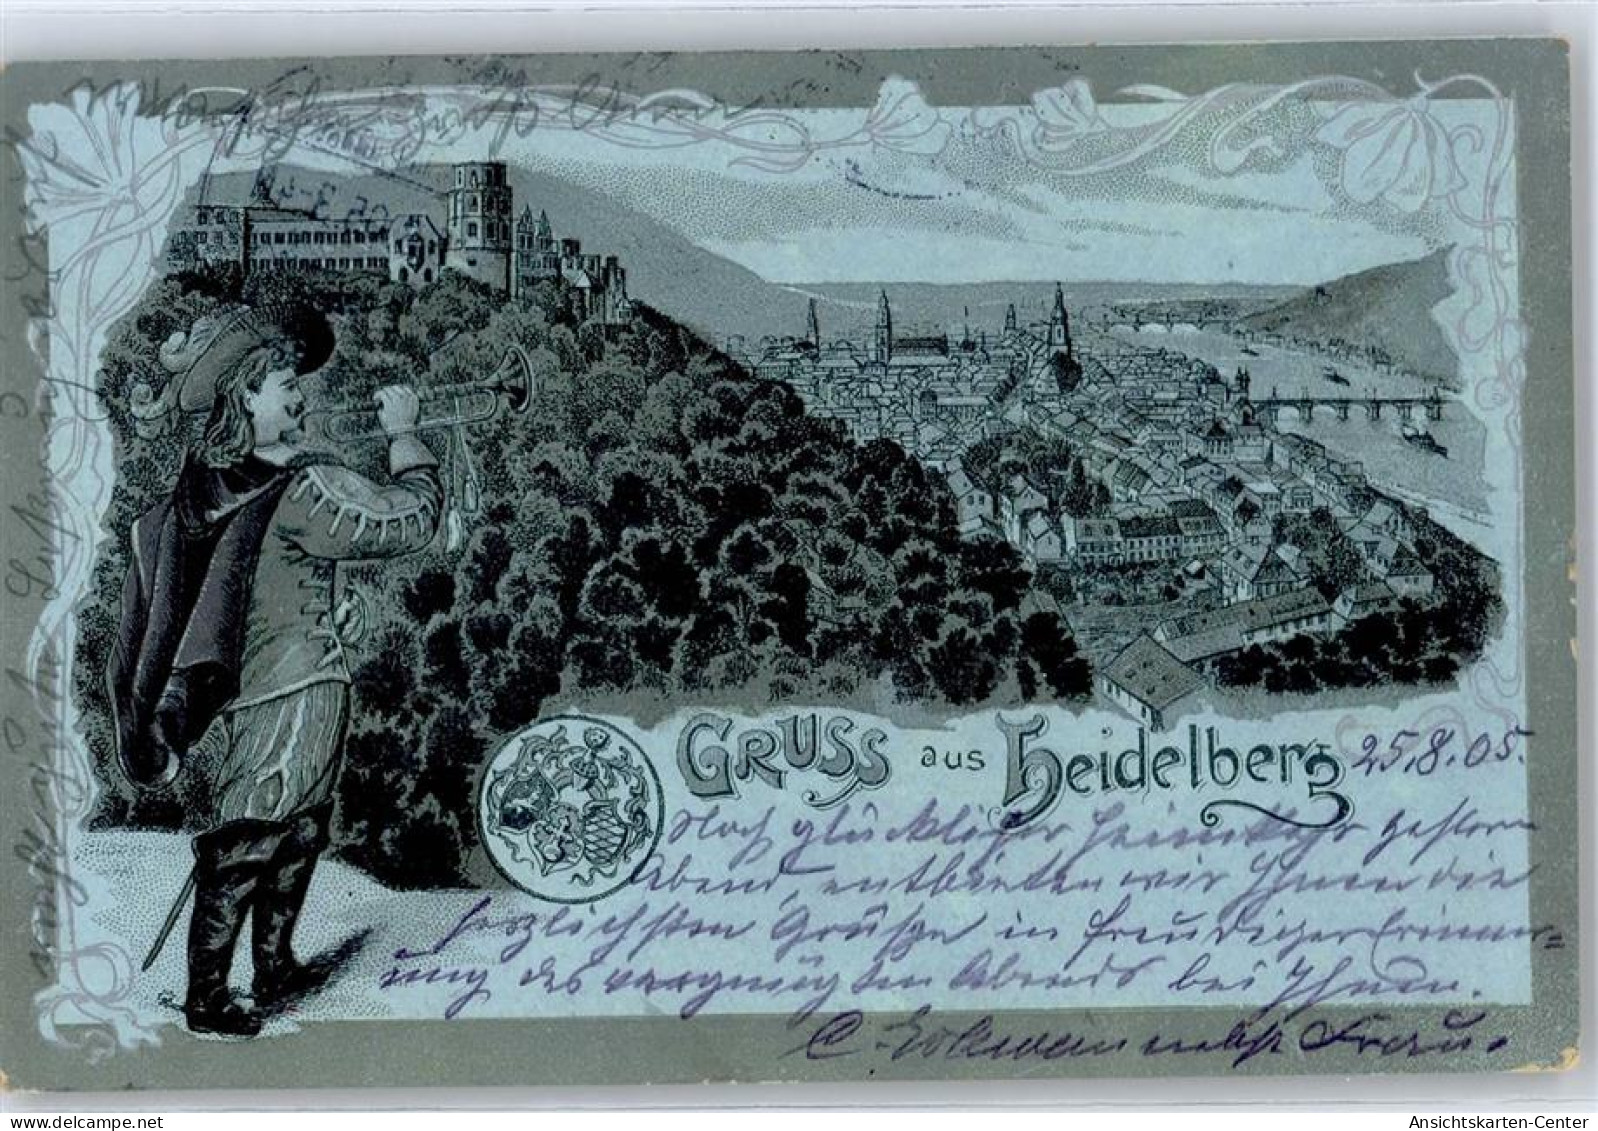 GRUSS aus Heidelberg 25.8.05.
Nach glücklicher Heimkehr gestern
Abend, entbieten wir Ihnen die
herzlichsten Grüße in freudiger Erinner=
ung des vergnügten Abends bei Ihnen.
C. Volkmann nebst Frau.
Ansichtskarten-Center